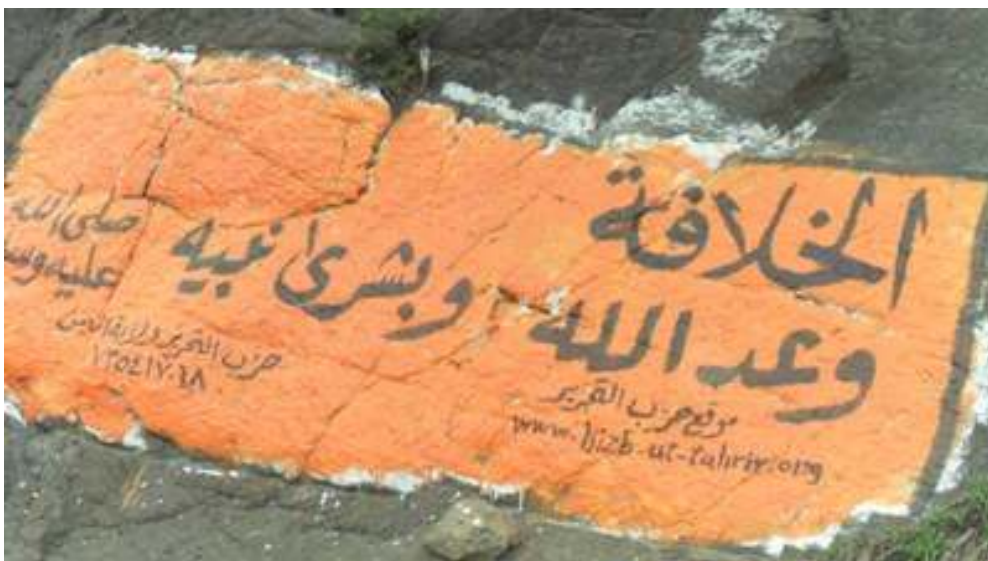 الخلافة
وعد الله وبشرى نبيه صلى الله
عليه وسلم
موقع حزب التحرير
www.hizb-ut-tahrir.org
حزب التحرير ولاية اليمن